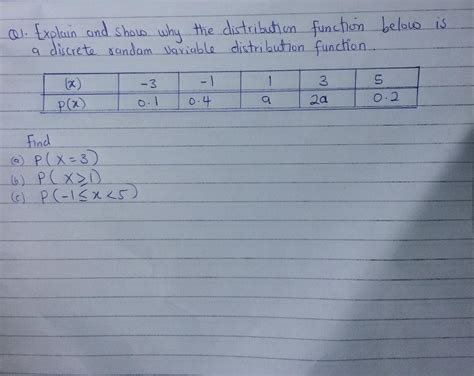 Q1. Explain and show why the distribution function below is
a discrete random variable distribution function.
(x) -3 -1 1 3 5
P(x) 0.1 0.4 a 2a 0.2
Find
(a) P(X=3)
(b) P(X≥1)
(c) P(-1≤x<5)